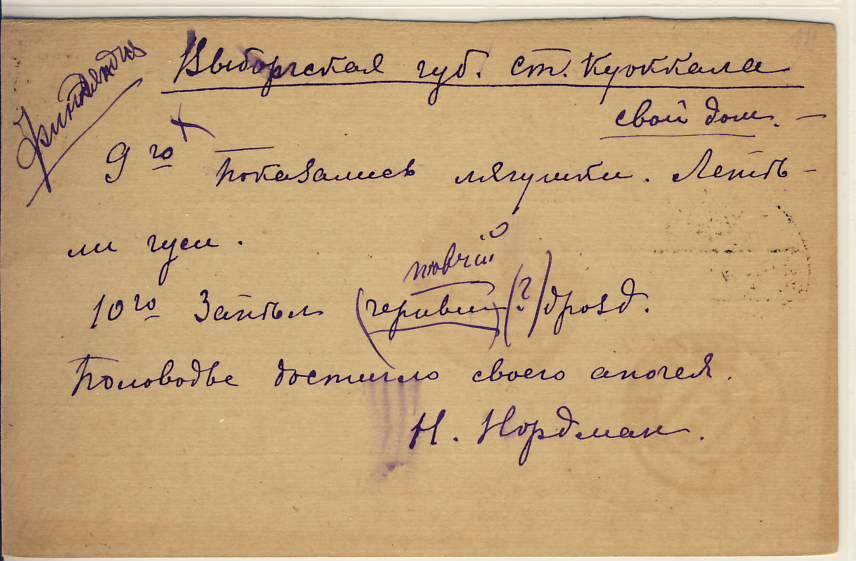 Финляндiя
Выборгская губ. ст. Куоккала
свой дом. —
9го Показались лягушки. Летѣ-
ли гуси.
пѣвчiй
10го Запѣл (черный) (?) дрозд.
Половодье достигло своего апогея.
Н. Нордман.